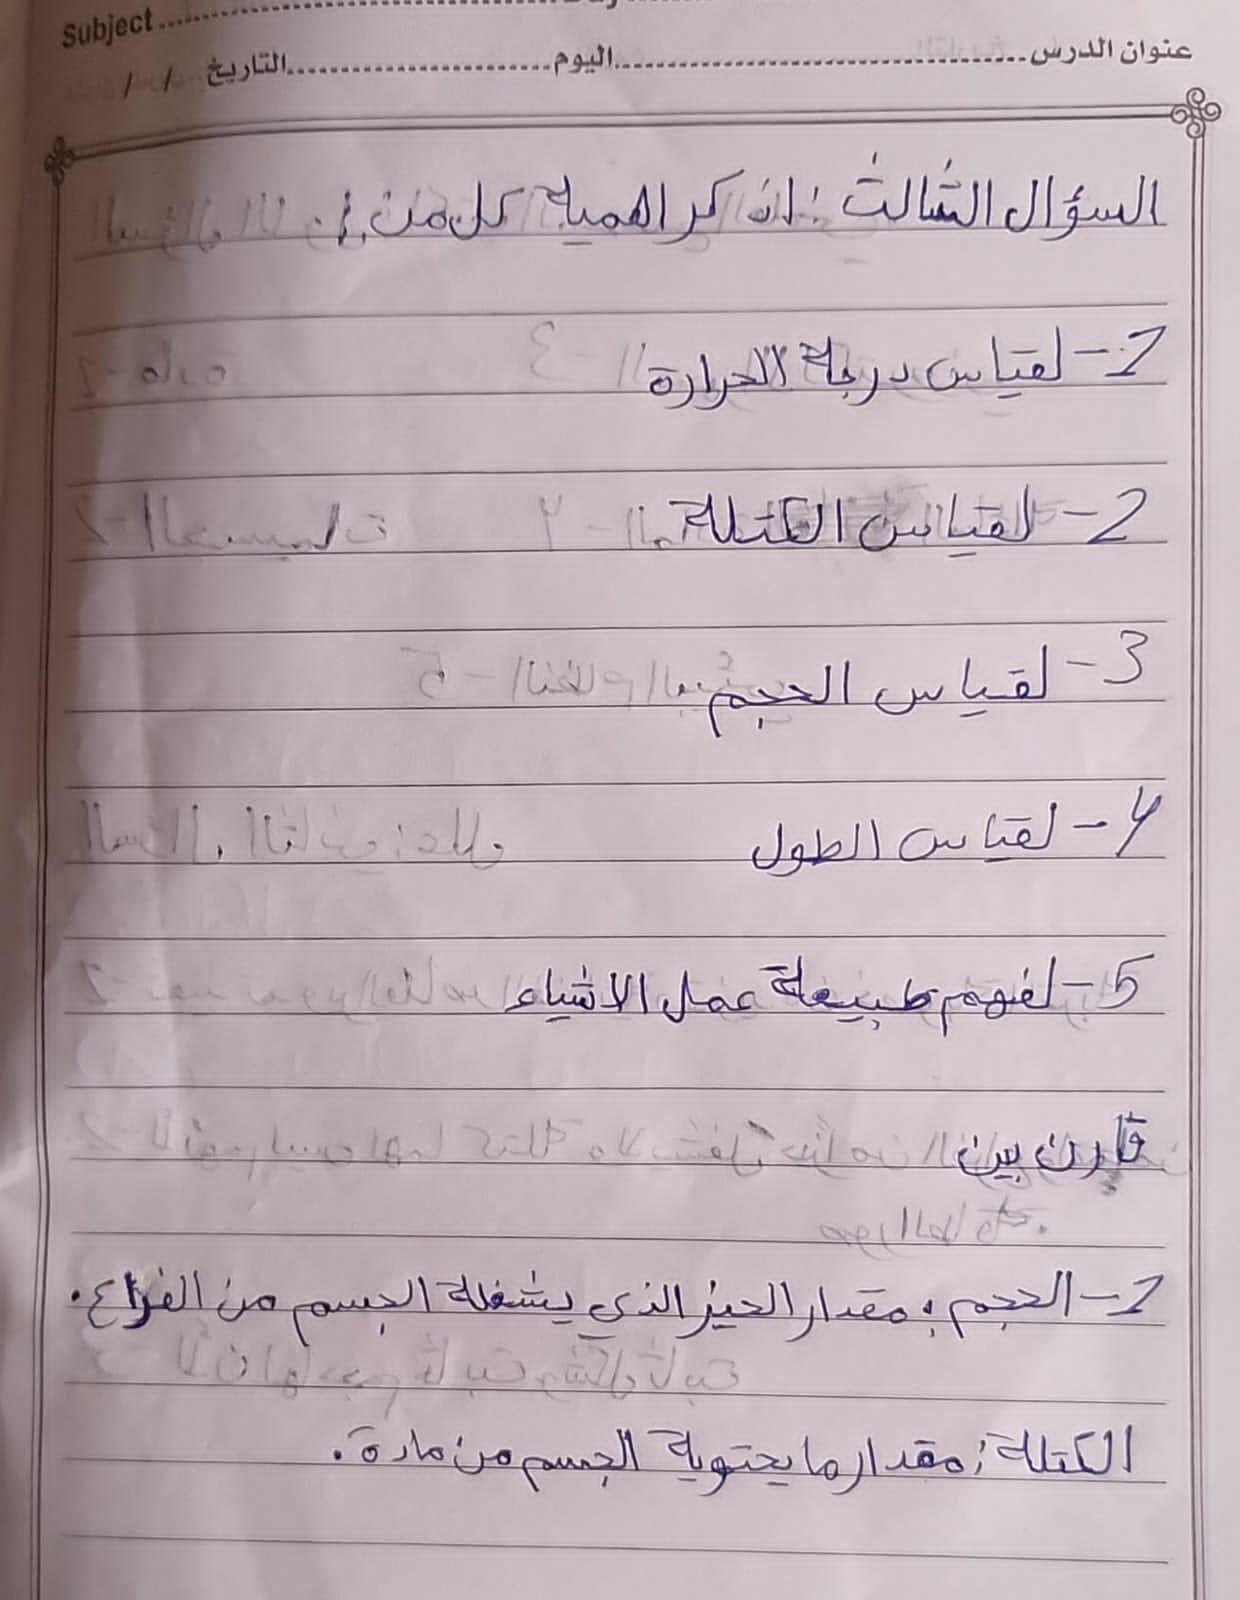 Subject
عنوان الدرس اليوم التاريخ / /
السؤال الثالث : اذكر اهمية كل من :
1- لقياس درجة الحرارة
2- لقياس الكتلة
3- لقياس الحجم
4- لقياس الطول
5- لفهم طبيعة عمل الاشياء
قارن بين
1- الحجم : مقدار الحيز الذي يشغلة الجسم من الفراغ .
الكتلة : مقدار ما يحتوية الجسم من مادة .